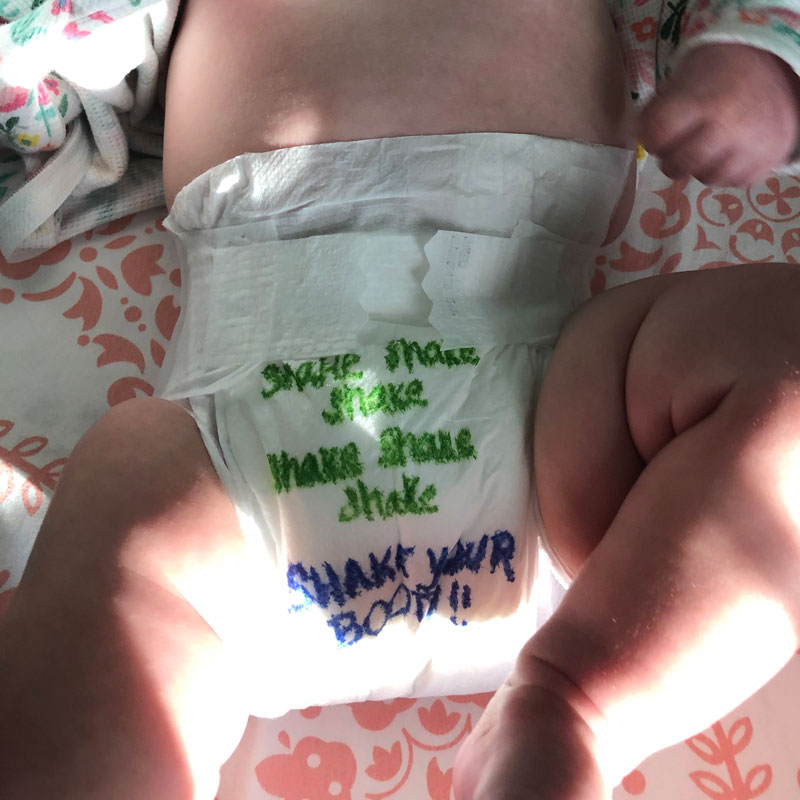 shake shake
shake
shake shake
shake
SHAKE YOUR
BOOTY!!